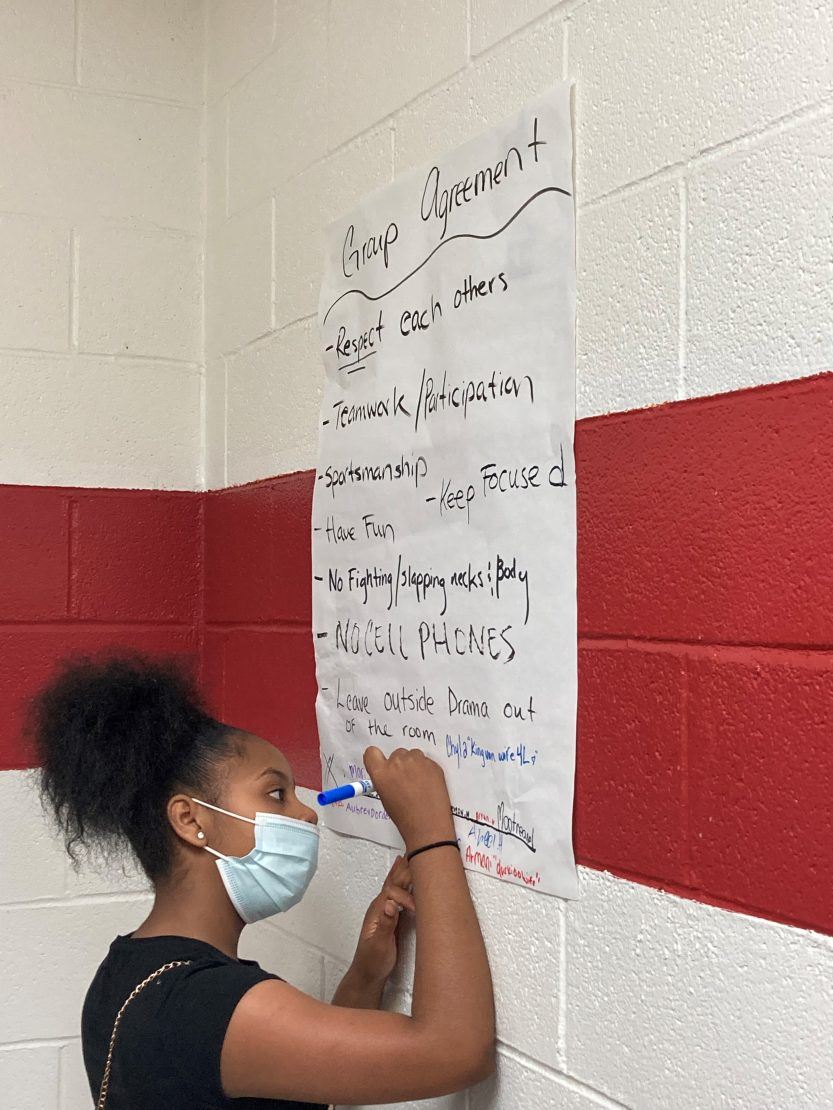 Group Agreement
- Respect each others
- Teamwork/Participation
- Sportsmanship
- Keep Focused
- Have Fun
- No Fighting/slapping necks & Body
- NO CELL PHONES
- Leave outside Drama out
of the room
Armani